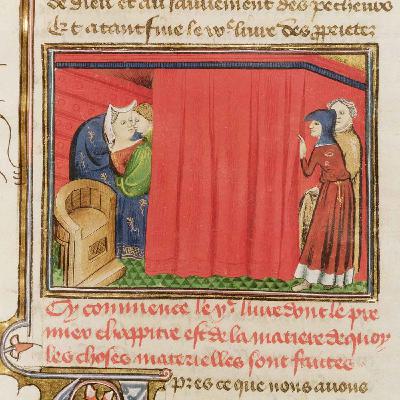 de dieu et au sauvement des pecheurs
Et atant fine le ixe livre des pprietez
Cy commence le xe livre dont le pre
mier chappitre est de la matiere de quoy
les choses materielles sont faittes
Apres ce que nous avons